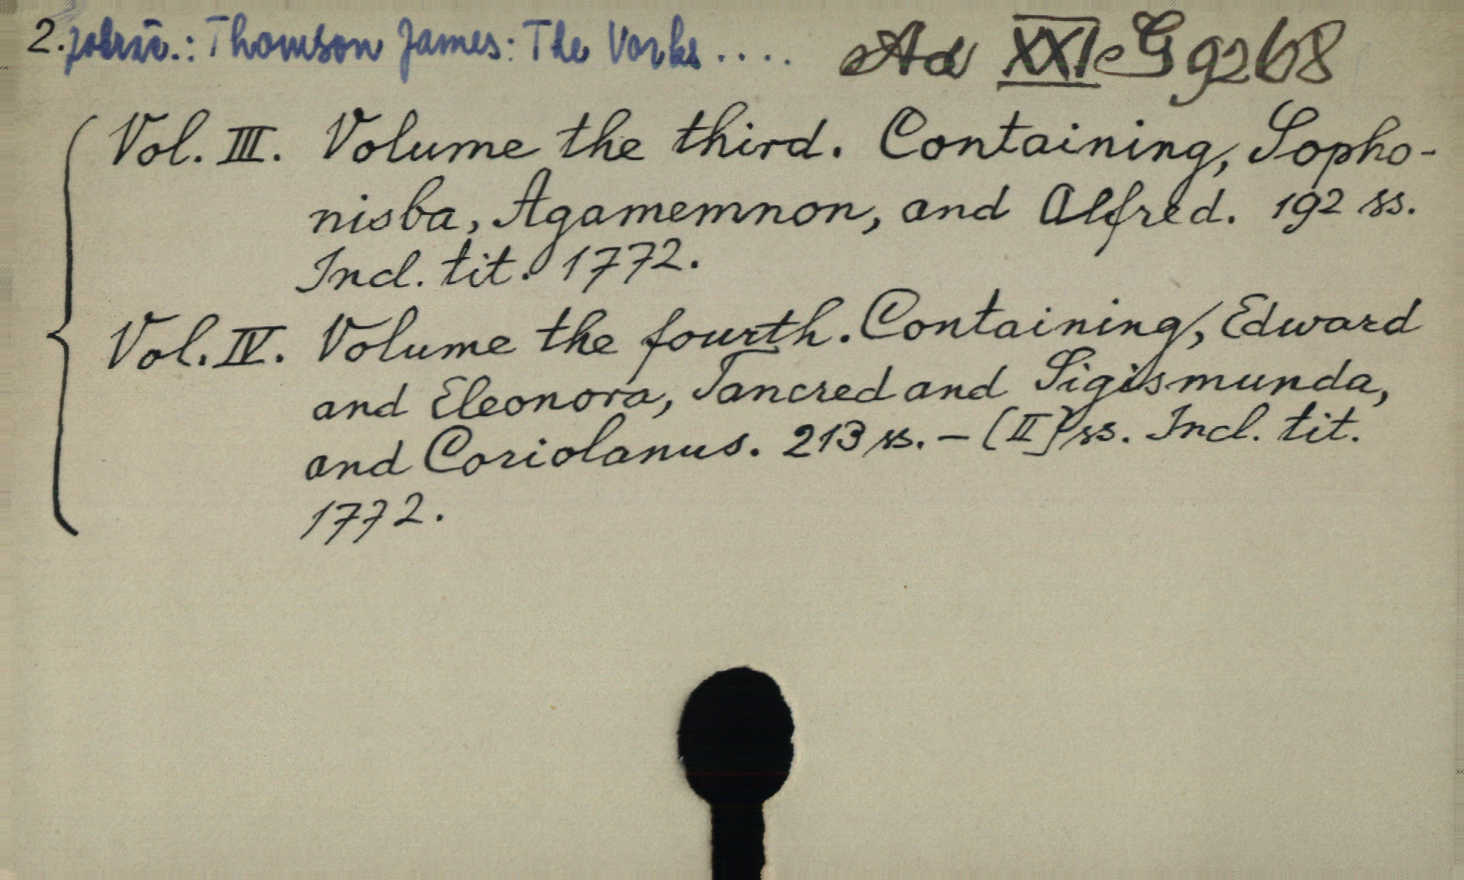 2. pokrač.: Thomson James: The Vorks .... Ad XXI G 9268
Vol. III. Volume the third. Containing, Sopho-
nisba, Agamemnon, and Alfred. 192 ss.
Incl. tit. 1772.
Vol. IV. Volume the fourth. Containing, Edward
and Eleonora, Tancred and Sigismunda,
and Coriolanus. 213 ss. – [II] ss. Incl. tit.
1772.